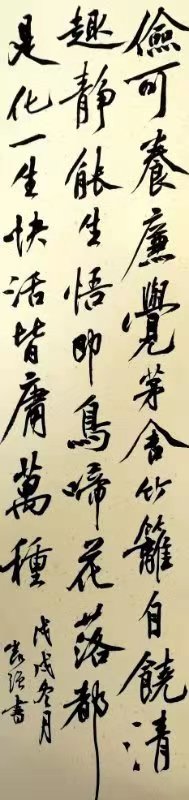 儉可養廉覺茅舍竹籬自饒清
趣靜能生悟即鳥啼花落都
是化一生快活皆庸萬種
戊戌冬月
書